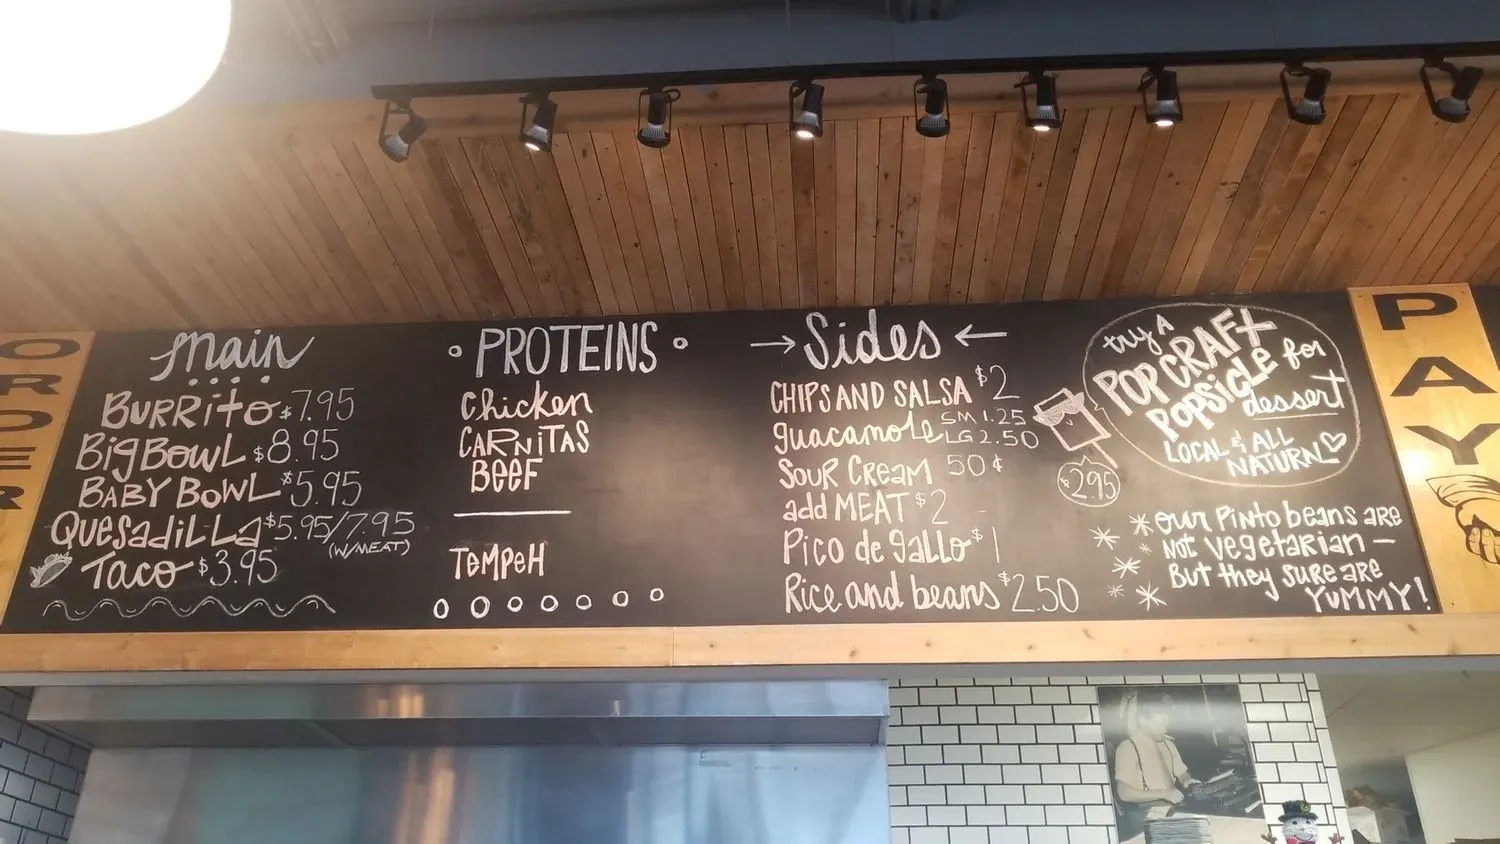 ORDER
Main
BURRito $7.95
Big Bowl $8.95
BABY BOWL $5.95
QuesadiLLa $5.95/7.95
(W/MEAT)
Taco $3.95
PROTEINS
Chicken
CARNiTAS
BEEF
TEMPEH
Sides
CHIPS AND SALSA $2
guacamole SM 1.25
LG 2.50
SOUR CREAM 50¢
add MEAT $2
Pico de gallo $1
Rice and beans $2.50
try A
POP CRAFT
POPSICLE for
dessert
LOCAL & ALL
NATURAL
$2.95
*OUR PINTO beans ARE
NOT vegetarian —
BUT they SURE ARE
YUMMY!
PAY